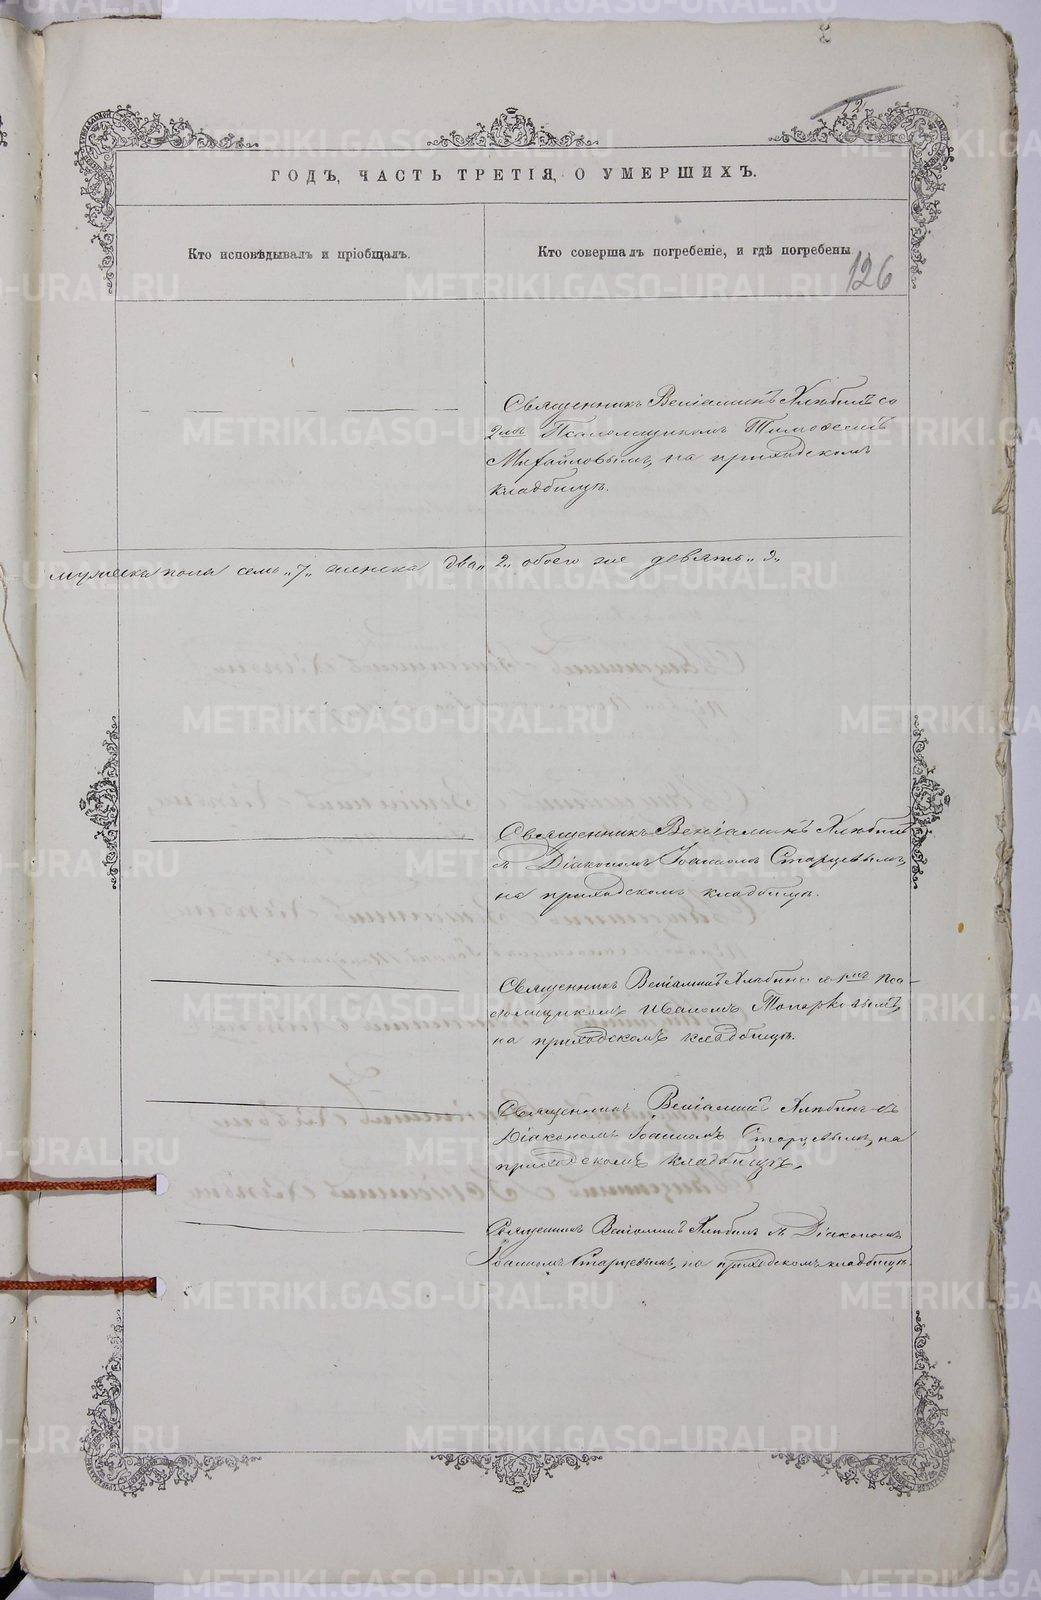 12
ГОДЪ, ЧАСТЬ ТРЕТІЯ, О УМЕРШИХЪ.
Кто исповѣдывалъ и пріобщалъ.
Кто совершалъ погребеніе, и гдѣ погребены
126
Священникъ Веніаминъ Хлѣбинъ со
2мъ Псаломщикомъ Тимофеемъ
Михайловымъ, на приходскомъ
кладбищѣ.
мужеска пола семь „7„ женска два „2„ обоего же девять „9„
Священникъ Веніаминъ Хлѣбинъ
съ Діакономъ Іоанномъ Старцевымъ,
на приходскомъ кладбищѣ.
Священникъ Веніаминъ Хлѣбинъ съ Пса-
ломщикомъ Иваномъ Топорковымъ,
на приходскомъ кладбищѣ.
Священникъ Веніаминъ Хлѣбинъ съ
Діакономъ Іоанномъ Старцевымъ, на
приходскомъ кладбищѣ.
Священникъ Веніаминъ Хлѣбинъ съ Діакономъ
Іоанномъ Старцевымъ, на приходскомъ кладбищѣ.
METRIKI.GASO-URAL.RU